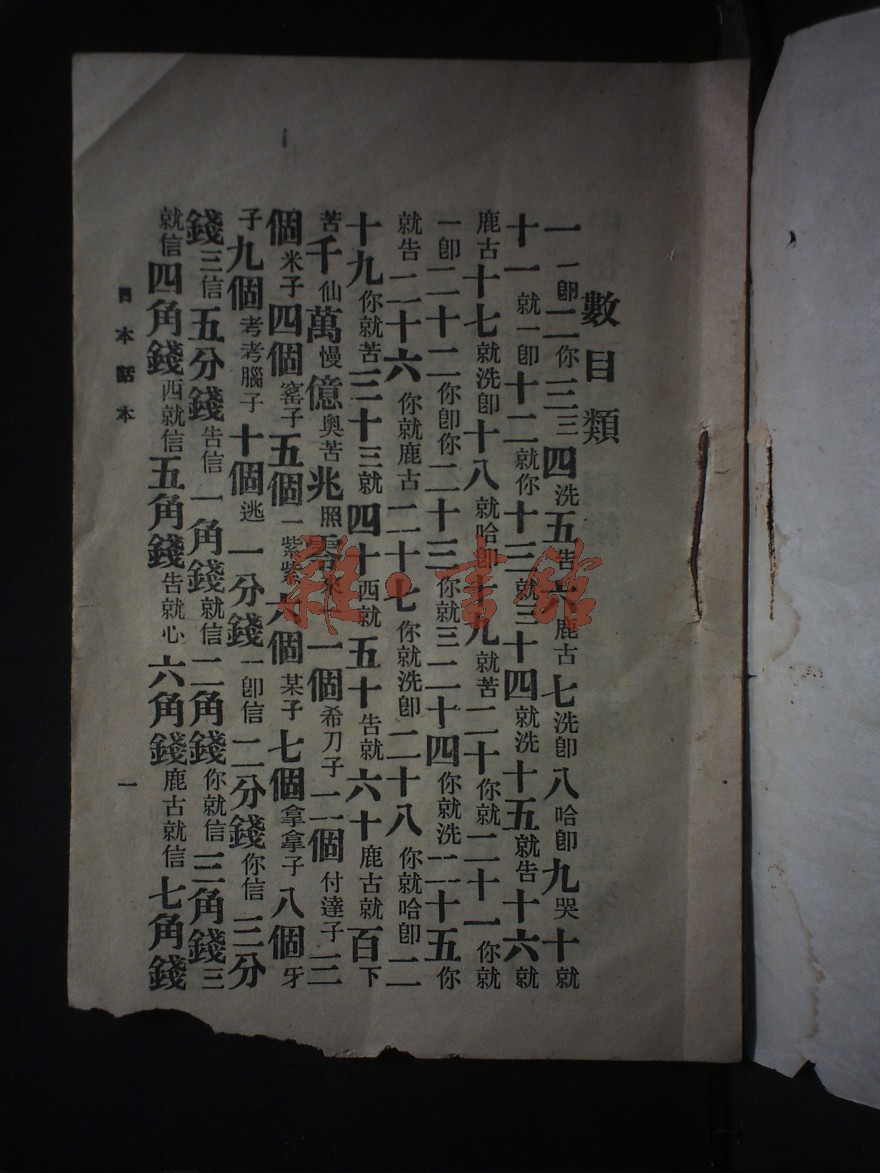 數目類
一一卽二你三三四洗五告六鹿古七洗卽八哈卽九哭十就
十一就一卽十二就你十三就三十四就洗十五就告十六就
鹿古十七就洗卽十八就哈卽十九就苦二十你就二十一你就
一卽二十二你卽你二十三你就三二十四你就洗二十五你
就告二十六你就鹿古二十七你就洗卽二十八你就哈卽二
十九你就苦三十三就四十西就五十告就六十鹿古就百下
苦千仙萬慢億奧苦兆照一個希刀子二個付達子三
個米子四個窰子五個一紫紫六個某子七個拿拿子八個牙
子九個考考腦子十個逃一分錢一卽信二分錢你信三分
錢三信五分錢告信一角錢就信二角錢你就信三角錢三
就信四角錢西就信五角錢告就心六角錢鹿古就信七角錢
日本話本
一
雜·書館